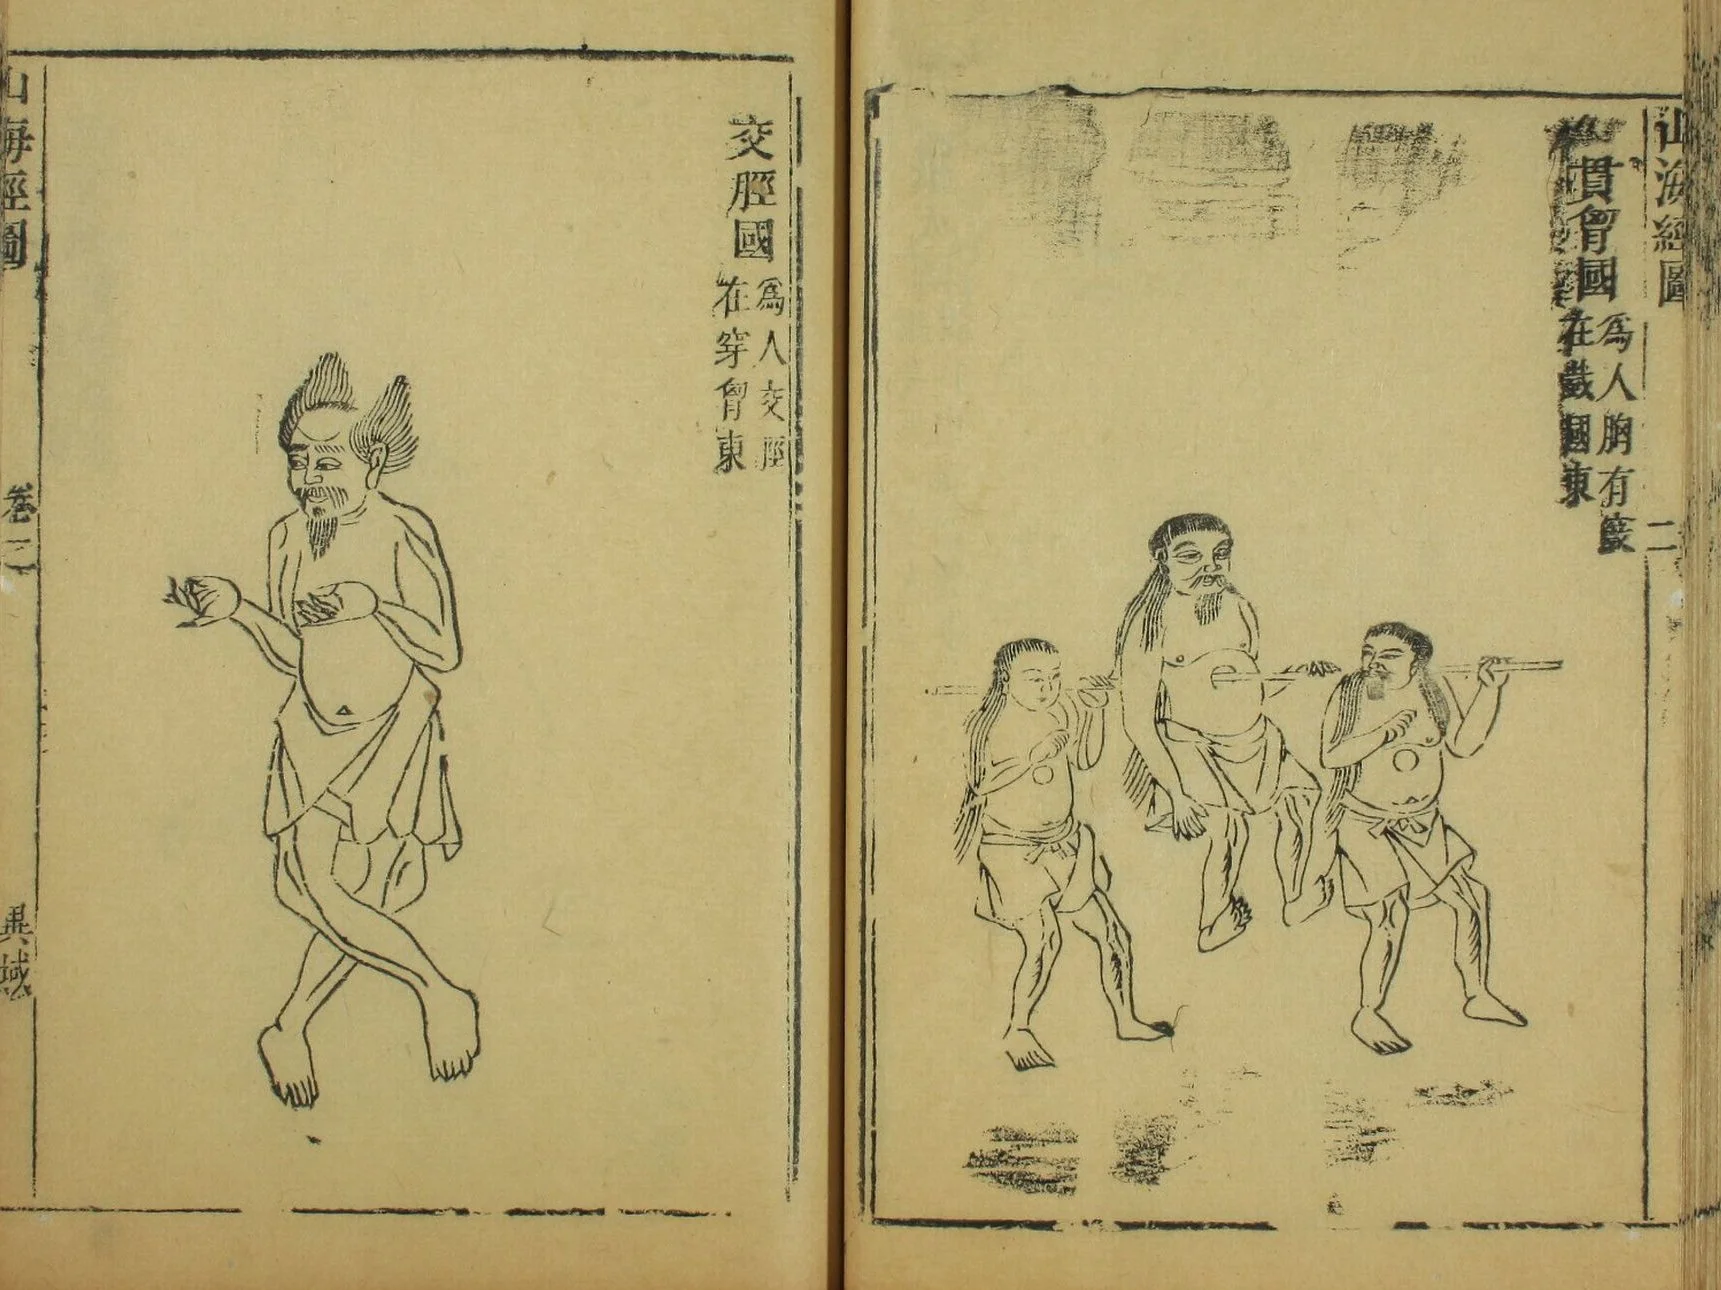 山海經圖
二
貫胷國
為人胸有竅
在臷國東
交脛國
為人交脛
在穿胷東
山海經圖
卷二
異域